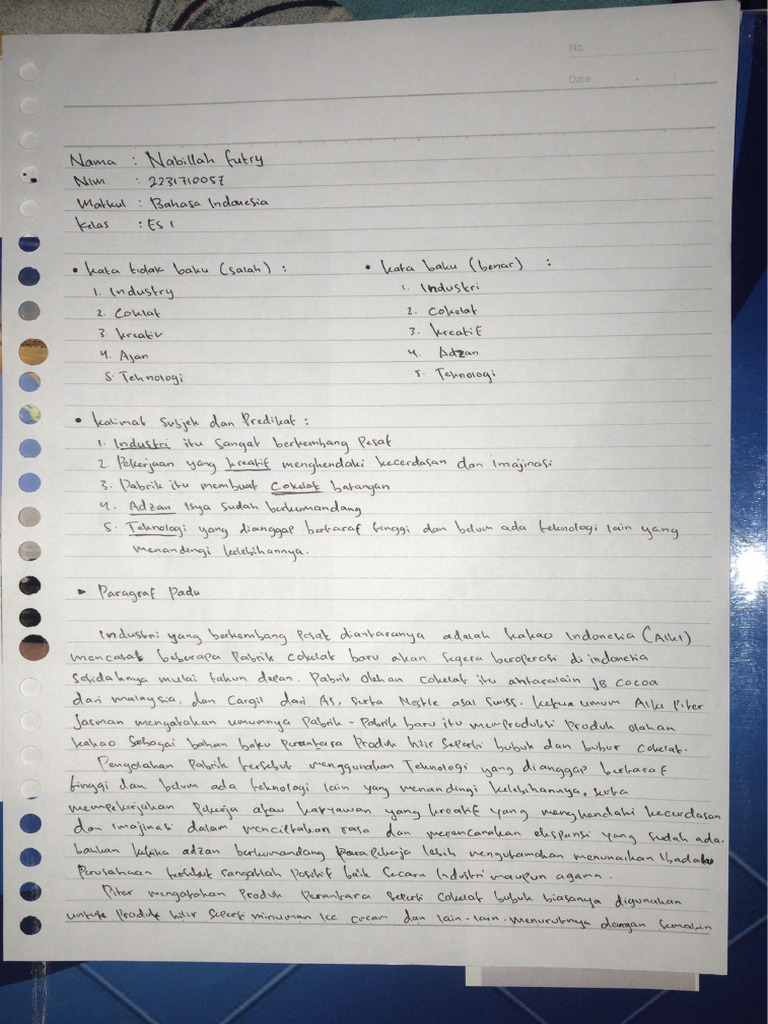 No.
Date
Nama : Nabillah futry
Nim : 2231710057
Matkul : Bahasa Indonesia
Kelas : ES 1
• Kata tidak baku (salah) :
1. Industry
2. Coklat
3. Kreativ
4. Azan
5. Tehnologi
• Kata baku (benar) :
1. Industri
2. Cokelat
3. Kreatif
4. Adzan
5. Teknologi
• Kalimat Subjek dan Predikat :
1. Industri itu sangat berkembang Pesat
2. Pekerjaan yang kreatif menghendaki kecerdasan dan imajinasi
3. Pabrik itu membuat Cokelat batangan
4. Adzan Isya sudah berkumandang
5. Teknologi yang dianggap bertaraf tinggi dan belum ada teknologi lain yang
menandingi kelebihannya.
▸ Paragraf Padu
Industri yang berkembang Pesat diantaranya adalah kakao Indonesia (AIKI)
mencatat beberapa Pabrik cokelat baru akan segera beroperasi di indonesia
setidaknya mulai tahun depan. Pabrik olahan cokelat itu antaralain JB COCOA
dari malaysia, dan Cargil dari As, serta Nestle asal Swiss. Ketua umum Aiki Piter
Jasman mengatakan umumnya Pabrik-Pabrik baru itu memproduksi Produk olahan
kakao Sebagai bahan baku perantara Produk hilir seperti bubuk dan bubur cokelat.
Pengolahan Pabrik tersebut menggunakan Teknologi yang dianggap bertaraf
tinggi dan belum ada teknologi lain yang menandingi kelebihannya, serta
mempekerjakan Pekerja atau karyawan yang kreatif yang menghendaki kecerdasan
dan imajinasi dalam menciptakan rasa dan merencanakan ekspansi yang sudah ada.
bahkan ketika adzan berkumandang para pekerja lebih mengutamakan menunaikan Ibadah
Perusahaan tersebut sangatlah Positif baik Secara Industri maupun agama.
Piter mengatakan Produk Perantara seperti cokelat bubuk biasanya digunakan
untuk Produk hilir seperti minuman ice cream dan lain-lain. menurutnya dengan semakin